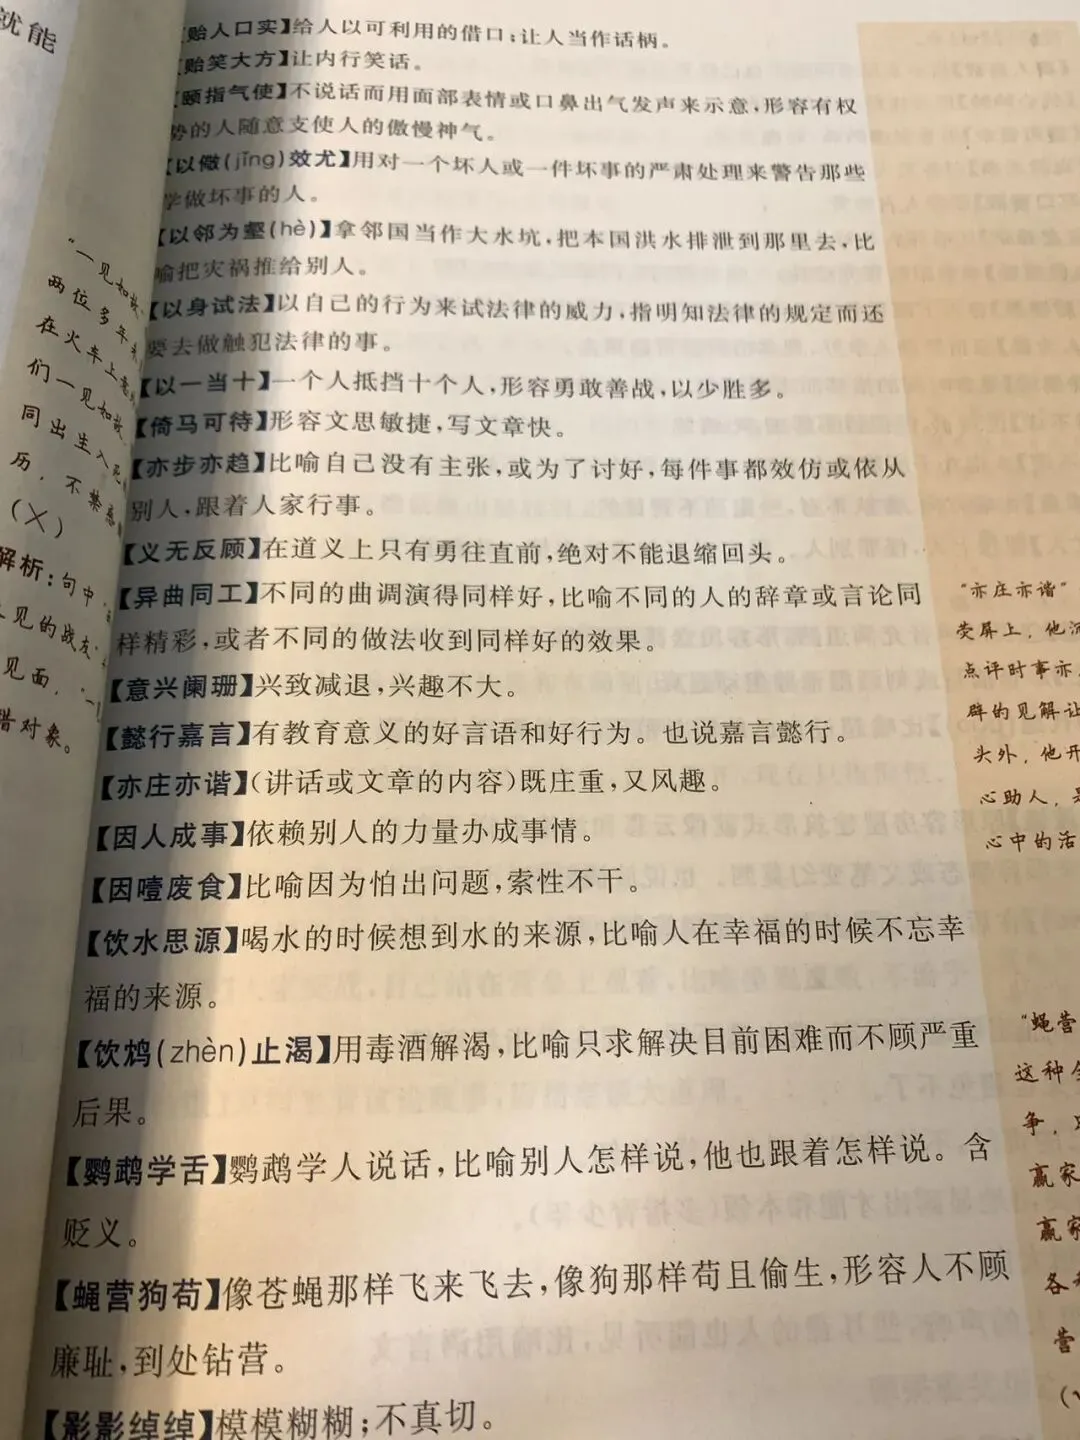 就能
"一见如故
两位多年
在火车上
们一见如故
同出生入死
历，不禁
(×)
解析：句中
见的战友
见面，"一
错对象。
【贻人口实】给人以可利用的借口；让人当作话柄。
【贻笑大方】让内行笑话。
【颐指气使】不说话而用面部表情或口鼻出气发声来示意，形容有权
势的人随意支使人的傲慢神气。
【以儆(jǐng)效尤】用对一个坏人或一件坏事的严肃处理来警告那些
学做坏事的人。
【以邻为壑(hè)】拿邻国当作大水坑，把本国洪水排泄到那里去，比
喻把灾祸推给别人。
【以身试法】以自己的行为来试法律的威力，指明知法律的规定而还
要去做触犯法律的事。
【以一当十】一个人抵挡十个人，形容勇敢善战，以少胜多。
【倚马可待】形容文思敏捷，写文章快。
【亦步亦趋】比喻自己没有主张，或为了讨好，每件事都效仿或依从
别人，跟着人家行事。
【义无反顾】在道义上只有勇往直前，绝对不能退缩回头。
【异曲同工】不同的曲调演得同样好，比喻不同的人的辞章或言论同
样精彩，或者不同的做法收到同样好的效果。
【意兴阑珊】兴致减退，兴趣不大。
【懿行嘉言】有教育意义的好言语和好行为。也说嘉言懿行。
【亦庄亦谐】(讲话或文章的内容)既庄重，又风趣。
【因人成事】依赖别人的力量办成事情。
【因噎废食】比喻因为怕出问题，索性不干。
【饮水思源】喝水的时候想到水的来源，比喻人在幸福的时候不忘幸
福的来源。
【饮鸩(zhèn)止渴】用毒酒解渴，比喻只求解决目前困难而不顾严重
后果。
【鹦鹉学舌】鹦鹉学人说话，比喻别人怎样说，他也跟着怎样说。含
贬义。
【蝇营狗苟】像苍蝇那样飞来飞去，像狗那样苟且偷生，形容人不顾
廉耻，到处钻营。
【影影绰绰】模模糊糊；不真切。
"亦庄亦谐"
荧屏上，他
点评时事亦
辟的见解让
头外，他开
心助人，是
心中的活
"蝇营
这种
争，
赢家
赢家
各
营
(√